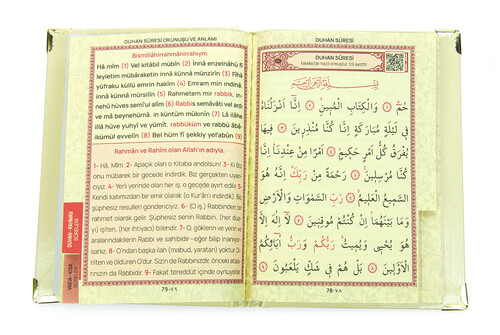 DUHAN SÛRESİ OKUNUŞU VE ANLAMI
Bismillâhirrahmânirrahıym.
Hâ mîm (1) Vel kitâbil mübîn (2) İnnâ enzelnâhü fî
leyletim mübâraketin innâ künnâ münzirîn (3) Fîhâ
yüfraku küllü emrin hakîm (4) Emram min ındinâ,
innâ künnâ mürsilîn (5) Rahmetem mir rabbik, in-
nehû hüves semî'ul alîm (6) Rabbis semâvâti vel ardı
ve mâ beynehümâ, in küntüm mûkınîn (7) Lâ ilâhe
illâ hüve yuhyî ve yümît, rabbüküm ve rabbü âbâi-
kümül evvelîn (8) Bel hüm fî şekkiy yel'abûn (9)
Rahmân ve Rahîm olan Allah'ın adıyla.
1- Hâ, Mîm. 2- Apaçık olan o Kitaba andolsun! 3- Ki Biz
onu mübarek bir gecede indirdik. Biz gerçekten uyarı-
cıyız. 4- Yani yerinde olan her iş, o gecede ayırt edilir. 5-
Kendi katımızdan bir emir olarak (o Kur'ân'ı indirdik). Biz
şüphesiz resulleri göndericiyiz. 6- (O iş), Rabbinden bir
rahmet olarak gelir. Şüphesiz senin Rabbin, (her du-
ayı) işiten, (her ihtiyacı) bilendir. 7- O, göklerin ve yerin ve
aralarındakilerin Rabbi ve sahibidir
8- O'ndan başka ilah (mabud, yaratan) yoktur. Di-
riten ve öldüren O'dur. Sizin de Rabbinizdir, önceki ata-
larınızın da Rabbidir. 9- Fakat tereddüt içinde oynuyorlar.
79-٧٩
DUHAN SÛRESİ
DUHAN SÛRESİ
حٰمٓ ۝ وَالْكِتَابِ الْمُبِينِ ۝ اِنَّٓا اَنْزَلْنَاهُ
فِى لَيْلَةٍ مُبَارَكَةٍ اِنَّا كُنَّا مُنْذِرِينَ ۝ فِيهَا
يُفْرَقُ كُلُّ اَمْرٍ حَكِيمٍ ۝ اَمْرًا مِنْ عِنْدِنَا اِنَّا
كُنَّا مُرْسِلِينَ ۝ رَحْمَةً مِنْ رَبِّكَ اِنَّهُ هُوَ
السَّمِيعُ الْعَلِيمُ ۝ رَبِّ السَّمٰوَاتِ وَالْاَرْضِ
وَمَا بَيْنَهُمَا اِنْ كُنْتُمْ مُوقِنِينَ ۝ لَٓا اِلٰهَ اِلَّا
هُوَ يُحْيِى وَيُمِيتُ رَبُّكُمْ وَرَبُّ اٰبَٓائِكُمُ
الْاَوَّلِينَ ۝ بَلْ هُمْ فِى شَكٍّ يَلْعَبُونَ ۝
78-٧٨